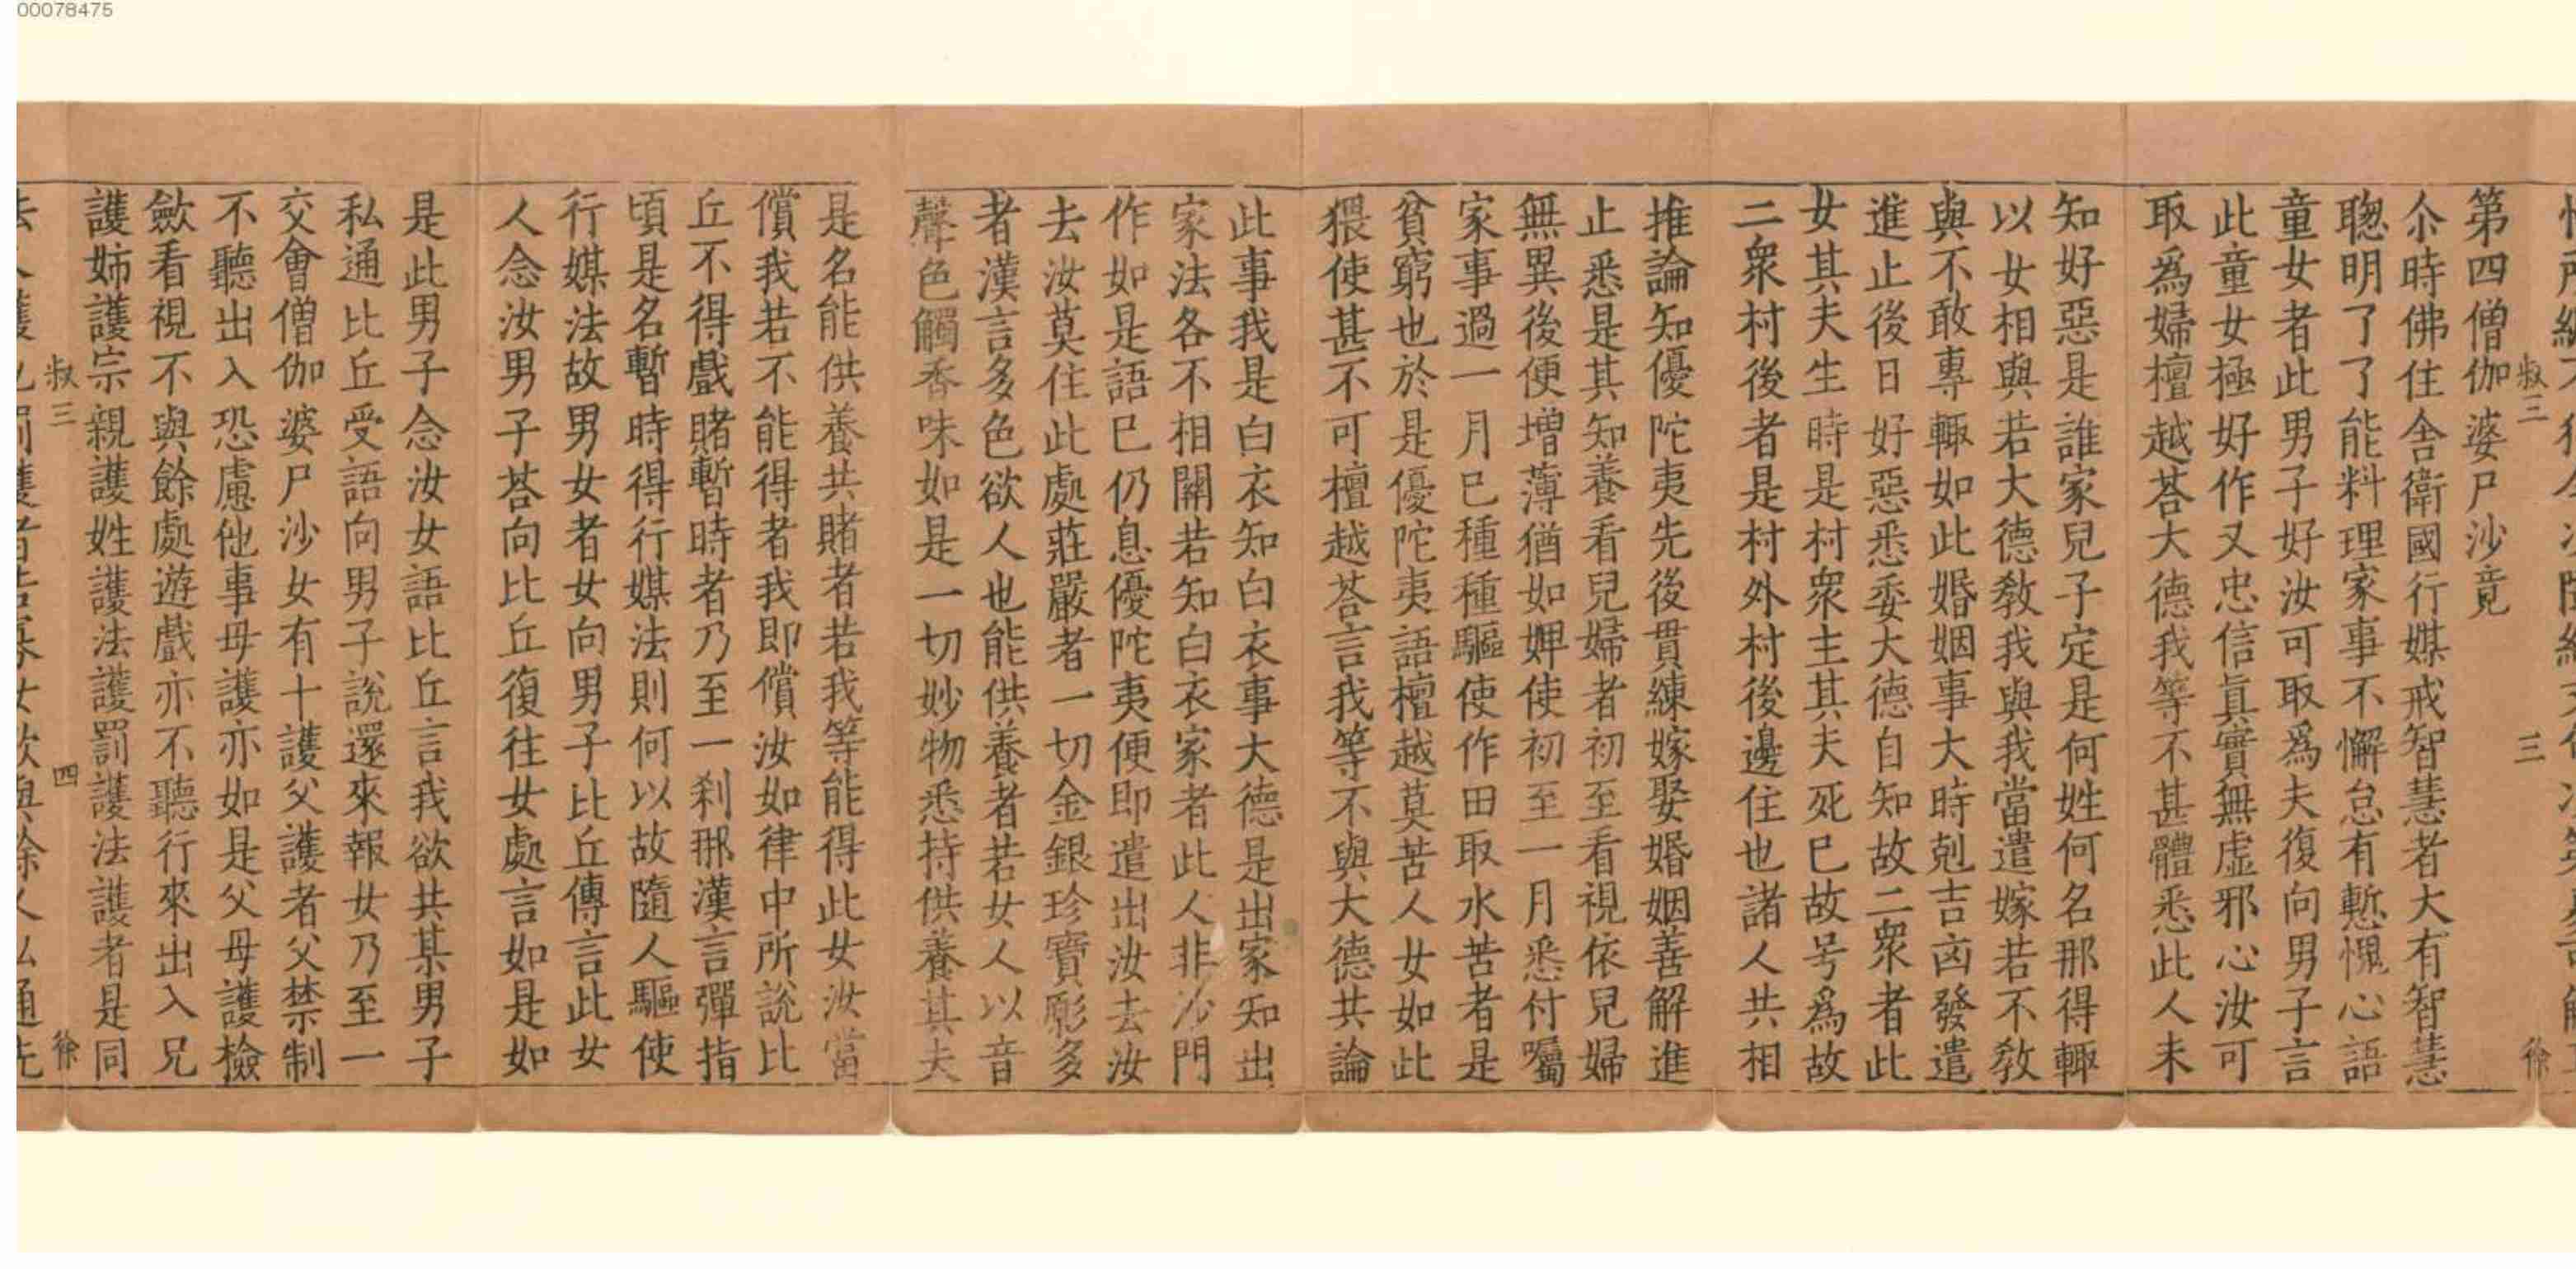 00078475
叔三
三
徐
第四僧伽婆尸沙竟
尒時佛住舍衛國行媒戒智慧者大有智慧
聦明了了能料理家事不懈怠有慙愧心語
童女者此男子好汝可取爲夫復向男子言
此童女極好作又忠信眞實無虛邪心汝可
取爲婦檀越荅大德我等不甚體悉此人未
知好惡是誰家兒子定是何姓何名那得輙
以女相與若大德教我與我當遣嫁若不教
與不敢專輙如此婚姻事大時剋吉㐫發遣
進止後日好惡悉委大德自知故二衆者此
女其夫生時是村衆主其夫死巳故号爲故
二衆村後者是村外村後邊住也諸人共相
推論知優陀夷先後貫練嫁娶婚姻善解進
止悉是其知知養看兒婦者初至看視依兒婦
無異後便增薄猶如婢使初至一月悉付囑
家事過一月巳種種驅使作田取水苦者是
貧窮也於是優陀夷語檀越莫苦人女如此
猥使甚不可檀越荅言我等不與大德共論
此事我是白衣知白衣事大德是出家知出
家法各不相關若知白衣家者此人非沙門
作如是語巳仍息優陀夷便即遣出汝去汝
去汝莫住此處莊嚴者一切金銀珍寶彫多
者漢言多色欲人也能供養者若女人以音
聲色觸香味如是一切妙物悉持供養其夫
是名能供養共賭者若我等能得此女汝當
償我若不能得者我即償汝如律中所說比
丘不得戲賭暫時者乃至一剎那漢言彈指
頃是名暫時得行媒法則何以故隨人驅使
行媒法故男女者女向男子比丘傳言此女
人念汝男子荅向比丘復往女處言如是如
是此男子念汝女語比丘言我欲共某男子
私通比丘受語向男子說還來報女乃至一
交會僧伽婆尸沙女有十護父護者父禁制
不聽出入恐慮他事母護亦如是父母護檢
斂看視不與餘處遊戲亦不聽行來出入兄
護姊護宗親護姓護法護罰護法護者是同
叔三
四
徐